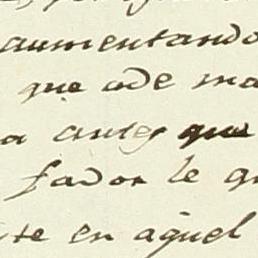 aumentando
que ade ma
a antes que
fador le q
te en aquel